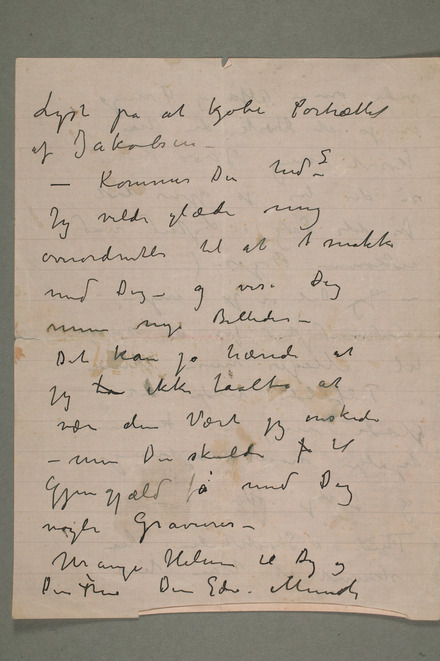 Lyst på at kjøbe Portrættet
af Jakobsen –
– Kommer Du ned –
Jeg vilde glæde mig
overordentlig til at snakke
med Dig – og vise Dig
mine nye Billeder –
Det kan jo hænde at
jeg ikke taalte at
være den Vært jeg ønskede
– men Du skulde til
Gjengjæld få med Dig
nogle Gravurer –
Mange Hilsner til Dig og
Din Frue Din Edv. Munch